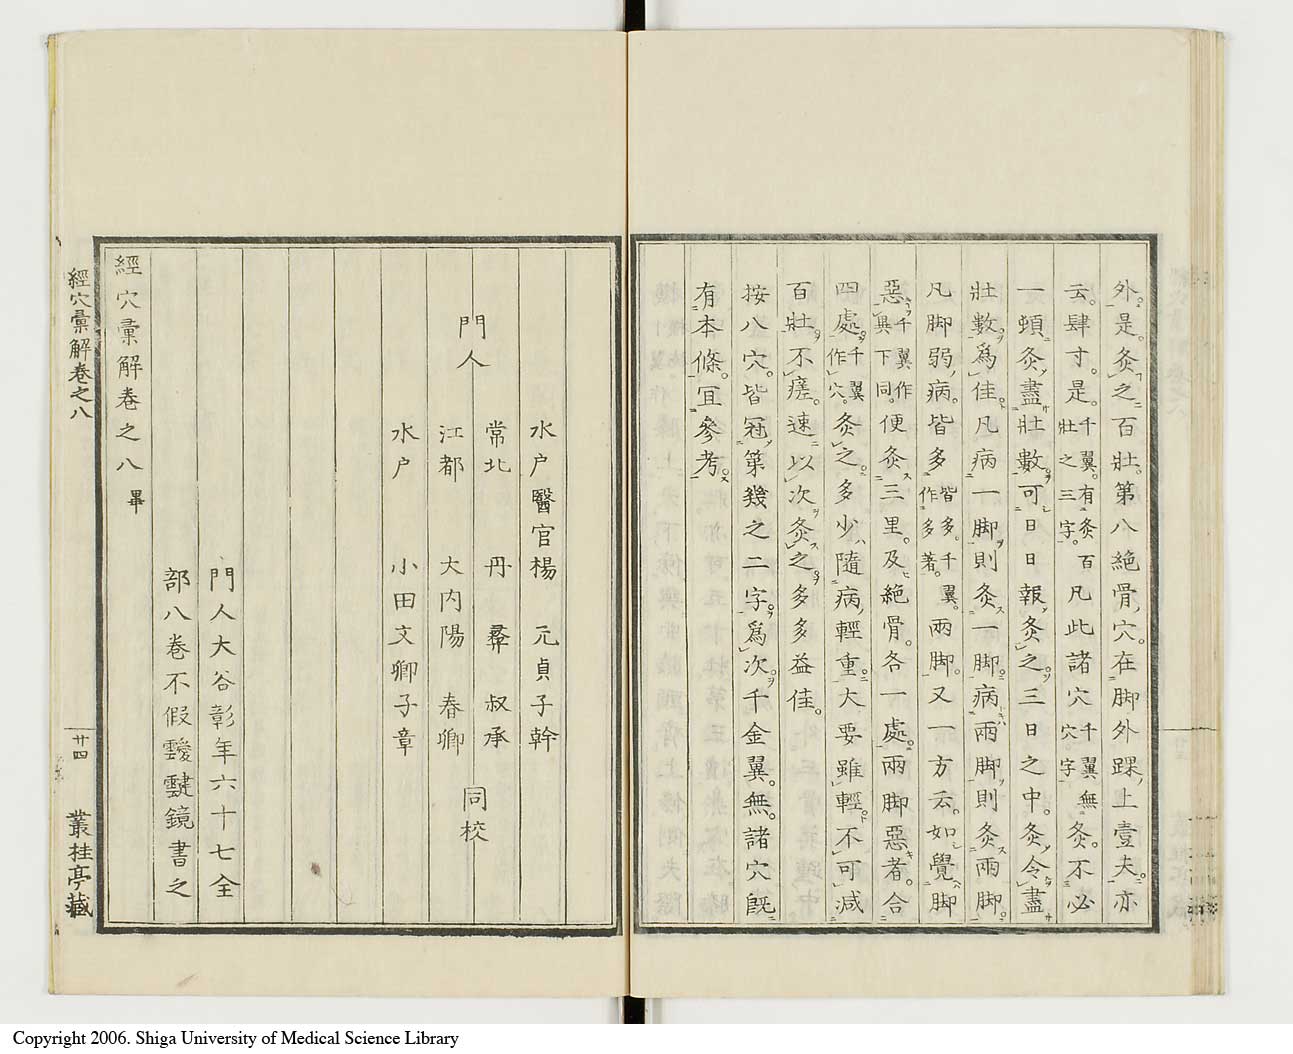 外是灸之百壯第八絶骨穴在脚外踝上壹夫亦
云肆寸是千翼有灸百壯之三字凡此諸穴千翼無穴字灸不必
一頓灸盡壯數可日日報灸之三日之中灸令盡
壯數爲佳凡病一脚則灸一脚病兩脚則灸兩脚
凡脚弱病皆多皆多千翼作多著兩脚又一方云如覺脚
惡千翼作異下同便灸三里及絶骨各一處兩脚惡者合
四處千翼作穴灸之多少隨病輕重大要雖輕不可减
百壯不瘥速以次灸之多多益佳
按八穴皆冠第幾之二字爲次千金翼無諸穴既
有本條宜參考
門人
水戸醫官楊 元貞子幹
常北 丹 彛 叔承
江都 大内陽 春卿
水戸 小田文卿子章
同校
門人大谷彰年六十七全
部八卷不假靉靆鏡書之
經穴彙解卷之八畢
經穴彙解卷之八
廿四
叢桂亭藏
Copyright 2006. Shiga University of Medical Science Library